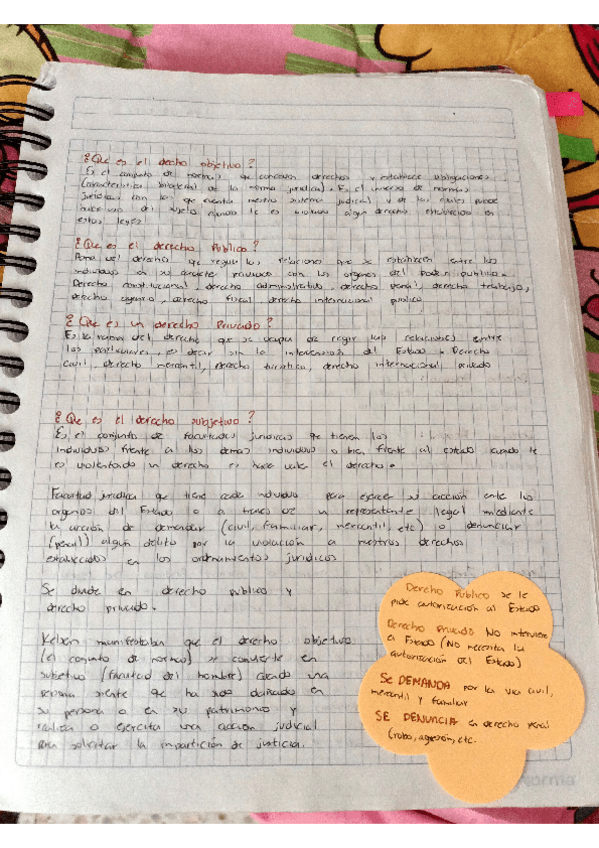 ¿Que es el decho objetivo?
Es el conjunto de normas, que conceden derechos y establece obligaciones
(característica bilateral de la norma jurídica). Es el universo de normas
jurídicas con las que cuenta nuestro sistema judicial y de las cuales puede
hacer uso del sujeto cuando le es violado algún derecho establecido en
estas leyes
¿Que es el derecho Público?
Rama del derecho que regula las relaciones que se establecen entre los
individuos en su carácter privado con los organos del poder publico.
Derecho constitucional, derecho administrativo, derecho penal, derecho trabajo,
derecho agrario, derecho fiscal, derecho internacional publico
¿Que es un derecho Privado?
Es la rama del derecho que se ocupa de regir las relaciones entre
los particulares, es decir sin la intervencion del Estado. Derecho
civil, derecho mercantil, derecho turistico, derecho internacional privado
¿Que es el derecho subjetivo?
Es el conjunto de facultades juridicas que tienen los
individuos frente a los demas individuos o bien, frente al estado cuando le
es violentado un derecho es hace valer el derecho.
Facultad juridica que tiene cada individuo para ejercer su acción ante los
organos del Estado o a traves de un representante legal mediante
la acción de demandar (civil, familiar, mercantil, etc) o denunciar
(penal) algún delito por la violación a nuestros derechos
establecidos en los ordenamientos juridicos
Se divide en derecho publico y
derecho privado.
Kelsen manifestaba que el derecho objetivo
(el conjunto de normas) se convierte en
subjetivo (facultad del hombre) cuando una
persona siente que ha sido dañado en
su persona o en su patrimonio y
realiza o ejercita una acción judicial
para solicitar la impartición de justicia.
Derecho Publico se le
pide autorización al Estado
Derecho Privado No interviene
el Estado (No necesita la
autorización del Estado)
Se DEMANDA por la via civil,
mercantil y familiar
SE DENUNCIA en derecho penal
(robo, agresión, etc.
norma